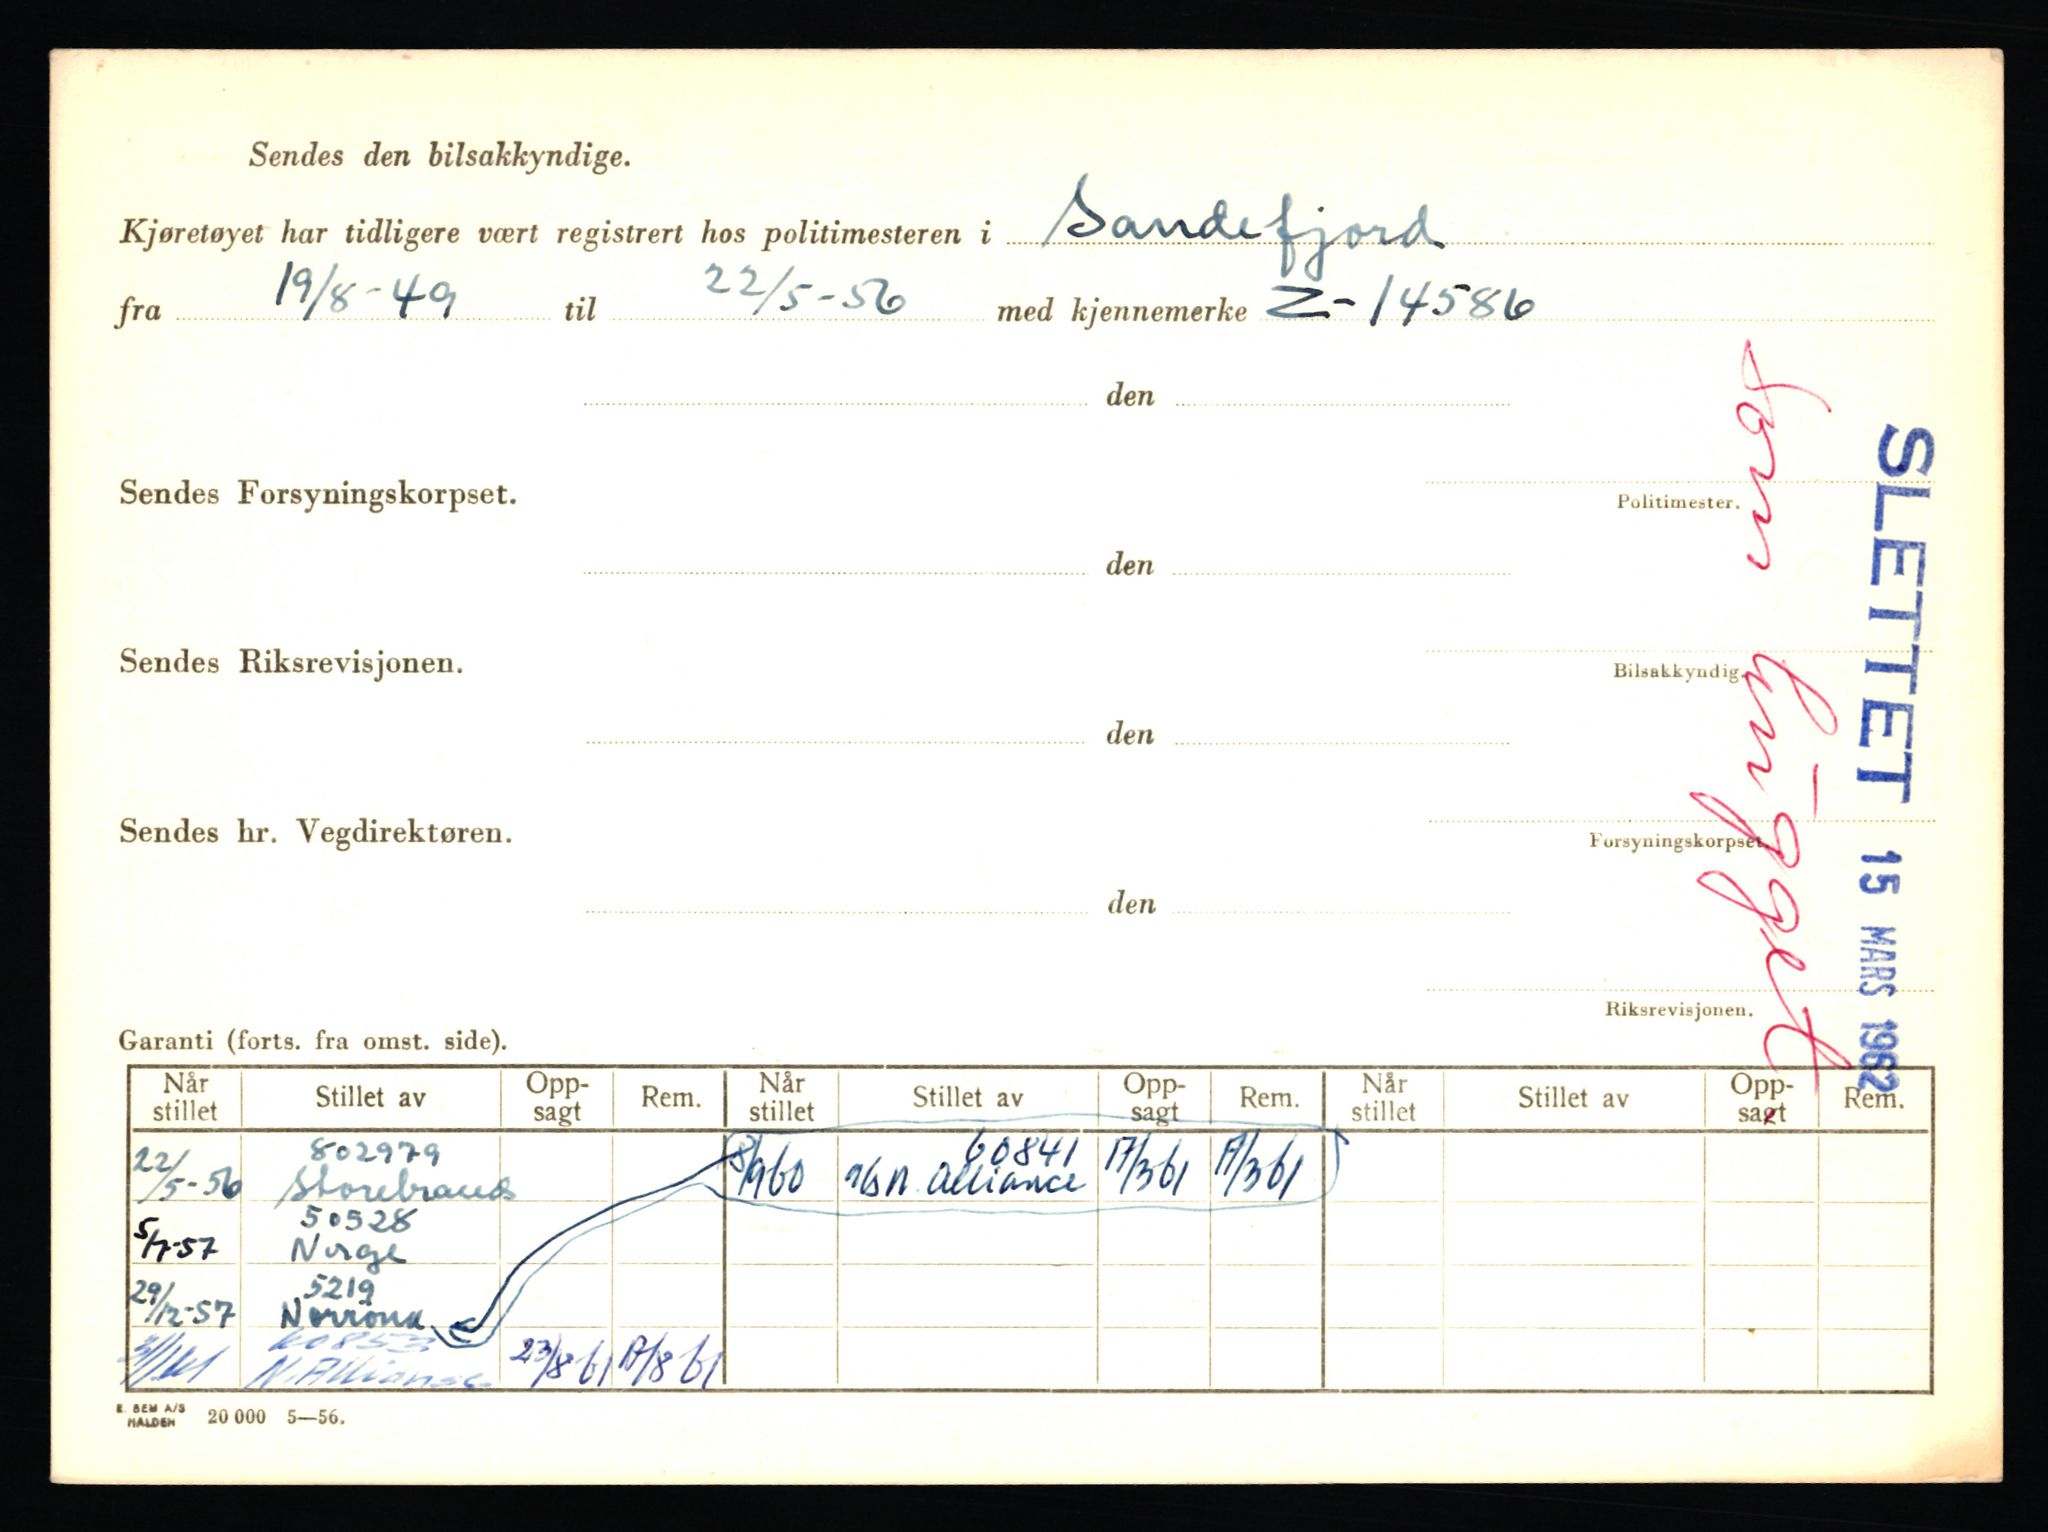 Sendes den bilsakkyndige.
Kjøretøyet har tidligere vært registrert hos politimesteren i Sandefjord
fra 19/8-49 til 22/5-56 med kjennemerke Z-14586
den
Sendes Forsyningskorpset.
Politimester.
den
Sendes Riksrevisjonen.
Bilsakkyndig.
den
Sendes hr. Vegdirektøren.
Forsyningskorpset
den
Riksrevisjonen.
Som hugget
SLETTET 15 MARS 1962
Garanti (forts. fra omst. side).
Når stillet Stillet av Opp-sagt Rem. Når stillet Stillet av Opp-sagt Rem. Når stillet Stillet av Opp-sagt Rem.
802979 60841
22/5-56 Storebrand N. Alliance 17/3 61 17/3 61
50528
5/7-57 Norge
5219
29/12-57 Norrøna
60853
N. Alliance 23/8 61 17/8 61
E. SEM A/S
HALDEN 20 000 5—56.